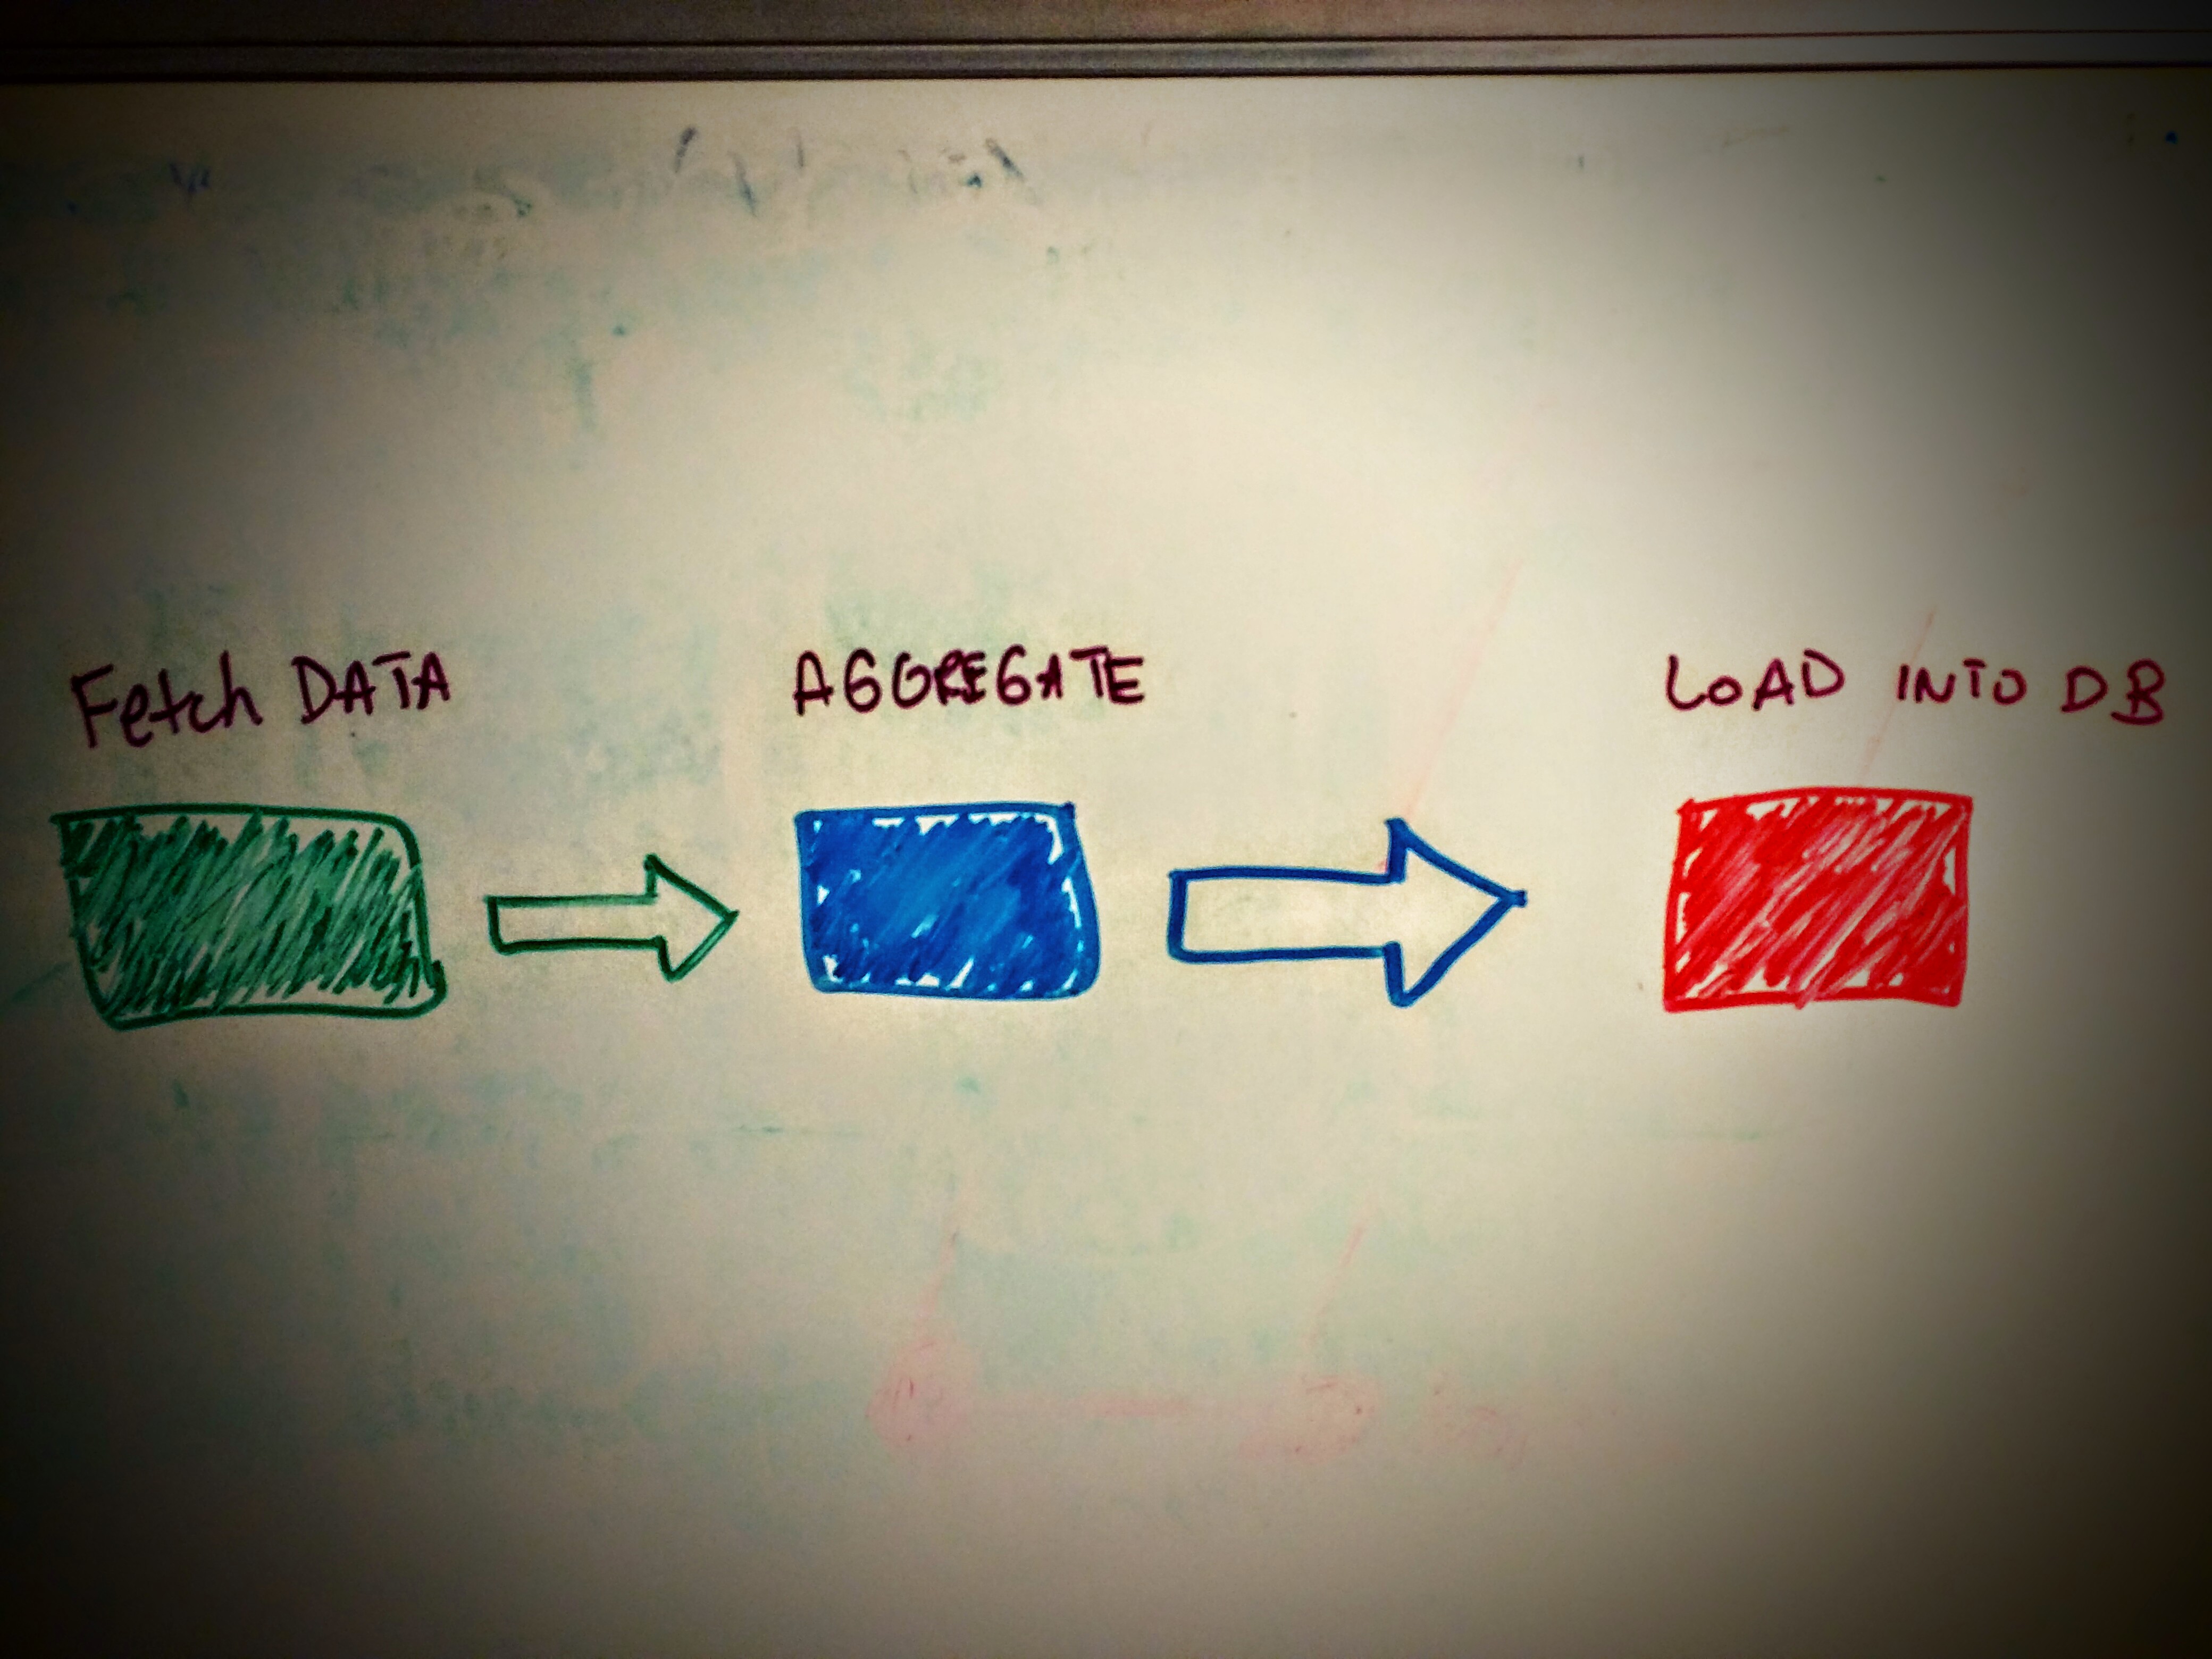 Fetch DATA
AGGREGATE
LOAD INTO DB